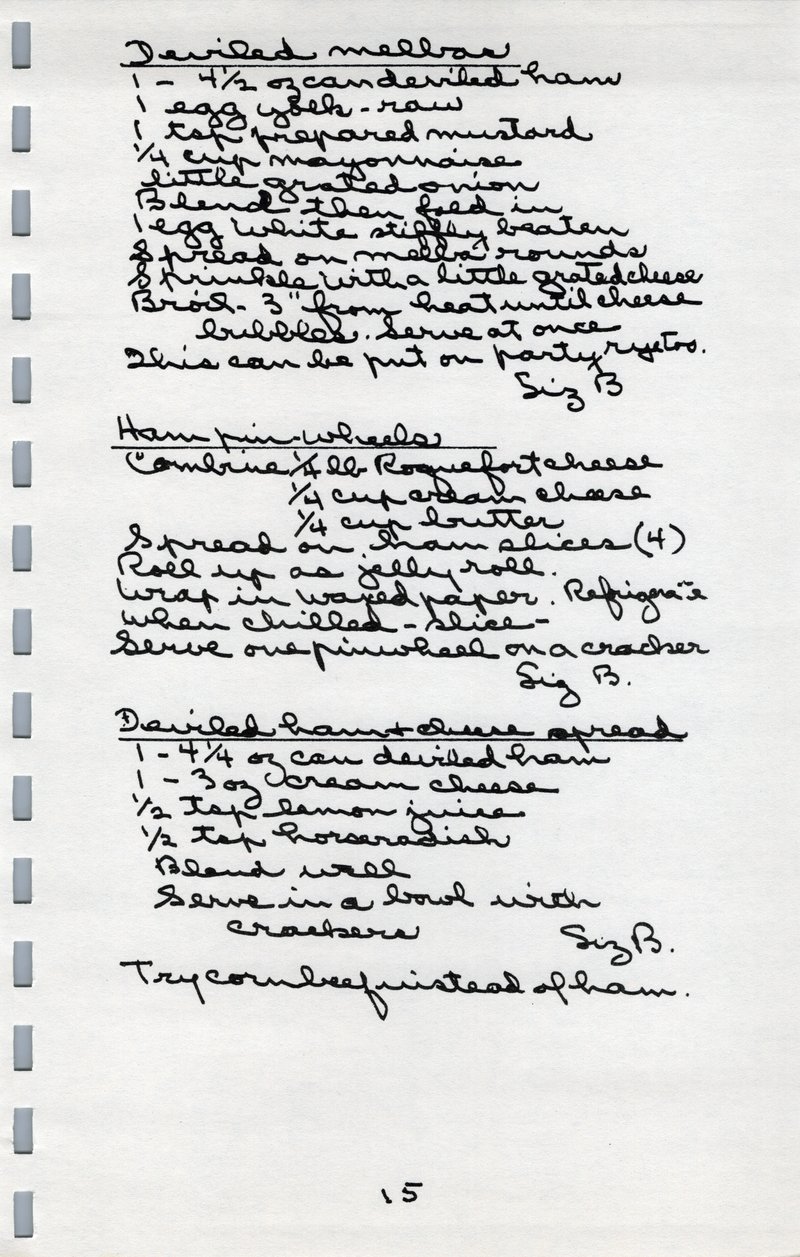 Deviled melbas
1 - 4½ oz can deviled ham
1 egg yolk - raw
1 tsp prepared mustard
¼ cup mayonnaise
little grated onion
Blend then fold in
1 egg white stiffly beaten
Spread on melba rounds
Sprinkle with a little grated cheese
Broil - 3" from heat until cheese
bubbles. Serve at once
This can be put on party rye too.
Siz B
Ham pin-wheels
Combine ¼ lb Roquefort cheese
¼ cup cream cheese
¼ cup butter
Spread on ham slices (4)
Roll up as jelly roll.
Wrap in waxed paper. Refrigerate
when chilled - slice -
Serve one pinwheel on a cracker
Siz B.
Deviled ham + cheese spread
1 - 4¼ oz can deviled ham
1 - 3 oz cream cheese
½ tsp lemon juice
½ tsp horseradish
Blend well
Serve in a bowl with
crackers
Siz B.
Try corn beef instead of ham.
15